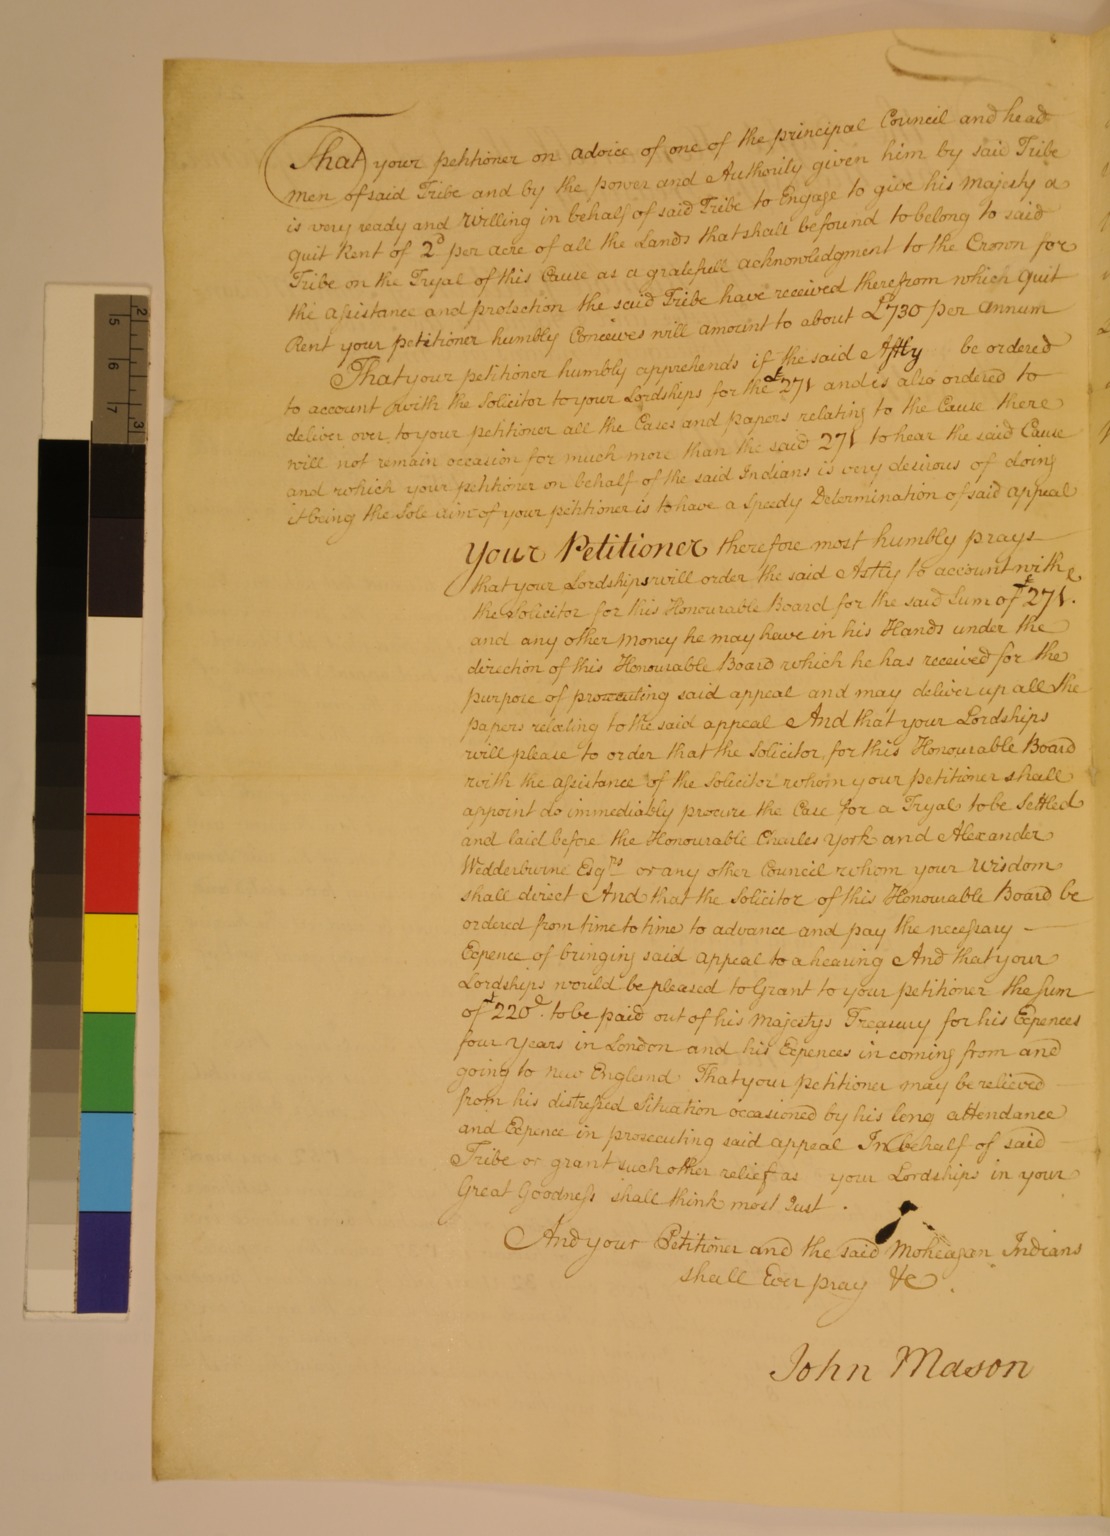 That your petitioner on advice of one of the principal Council and head
men of said Tribe and by the power and Authority given him by said Tribe
is very ready and Willing in behalf of said Tribe to Engage to give his Majesty a
quit Rent of 2d per acre of all the Lands that shall be found to belong to said
Tribe on the Tryal of this Cause as a gratefull acknowledgment to the Crown for
the assistance and protection the said Tribe have received therefrom which Quit
Rent your petitioner humbly Conceives will amount to about £730 per Annum
That your petitioner humbly apprehends if the said Astly be ordered
to account with the Solicitor to your Lordships for the £271 and is also ordered to
deliver over to your petitioner all the Cases and papers relating to the Cause there
will not remain occasion for much more than the said 271 to hear the said Cause
and which your petitioner on behalf of the said Indians is very desirous of doing
it being the Sole aim of your petitioner is to have a Speedy Determination of said appeal
Your Petitioner therefore most humbly prays
that your Lordships will order the said Astly to account with
the Solicitor for this Honourable Board for the said Sum of £271.
and any other money he may have in his Hands under the
direction of this Honourable Board which he has received for the
purpose of prosecuting said appeal and may deliver up all the
papers relating to the said appeal And that your Lordships
will please to order that the Solicitor for this Honourable Board
with the assistance of the Solicitor whom your petitioner shall
appoint do immediatly procure the Case for a Tryal to be Settled
and laid before the Honourable Charles York and Alexander
Wedderburne Esqrs or any other Council whom your Wisdom
shall direct And that the Solicitor of this Honourable Board be
ordered from time to time to advance and pay the necessary
Expence of bringing said appeal to a hearing And that your
Lordships would be pleased to Grant to your petitioner the sum
of £220 to be paid out of his Majestys Treasury for his Expences
four years in London and his Expences in coming from and
going to New England That your petitioner may be relieved
from his distressed Situation occasioned by his long attendance
and Expence in prosecuting said appeal In behalf of said
Tribe or grant such other relief as your Lordships in your
Great Goodness shall think most Just.
And your Petitioner and the said Moheagan Indians
shall Ever pray &c.
John Mason
2
5
6
7
3